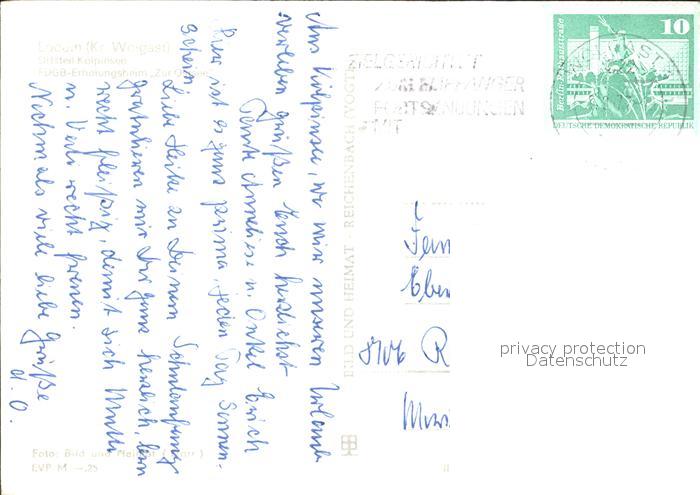 Loddin (Kr. Wolgast)
Ortsteil Kölpinsee
FDGB-Erholungsheim „Zur Ostsee“
Am Kölpinsee, wo wir unseren Urlaub
verleben grüßen Euch herzlichst
Tante Anneliese u. Onkel Erich
Hier ist es ganz prima, jeden Tag Sonnen-
schein.
Liebe Heike zu Deinem Schulanfang
gratulieren wir Dir ganz herzlich, lern
recht fleißig, damit sich Mutti
u. Vati recht freuen.
Nochmals viele liebe Grüße
d. O.
Foto: Bild und Heimat
EVP M —,25
BILD UND HEIMAT REICHENBACH (VOGTL)
POSTSENDUNGEN
MIT
10
DEUTSCHE DEMOKRATISCHE REPUBLIK
Fam
Eber
R
privacy protection
Datenschutz